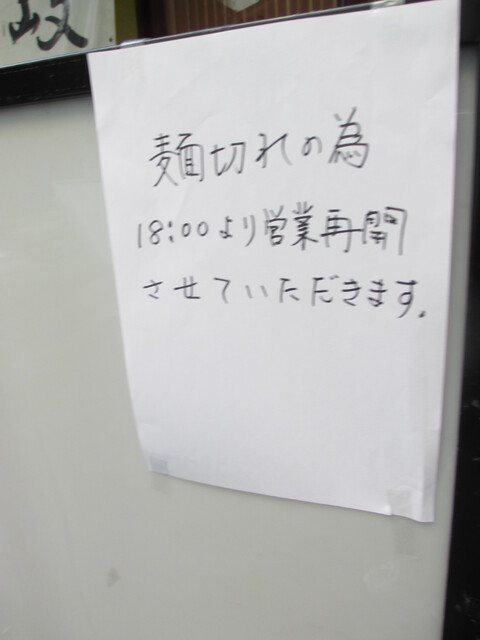 麺切れの為
18:00より営業再開
させていただきます.